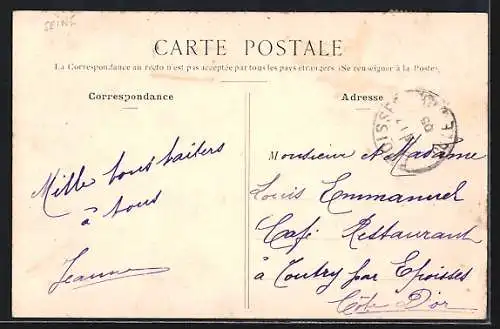 SEINE
CARTE POSTALE
La Correspondance au recto n'est pas acceptée par tous les pays étrangers (Se renseigner à la Poste)
Correspondance
Adresse
Mille bons baisers
à tous
Jeanne
Monsieur et Madame
Louis Emmanuel
Café Restaurant
à Toutry par Epoisses
Côte D'or